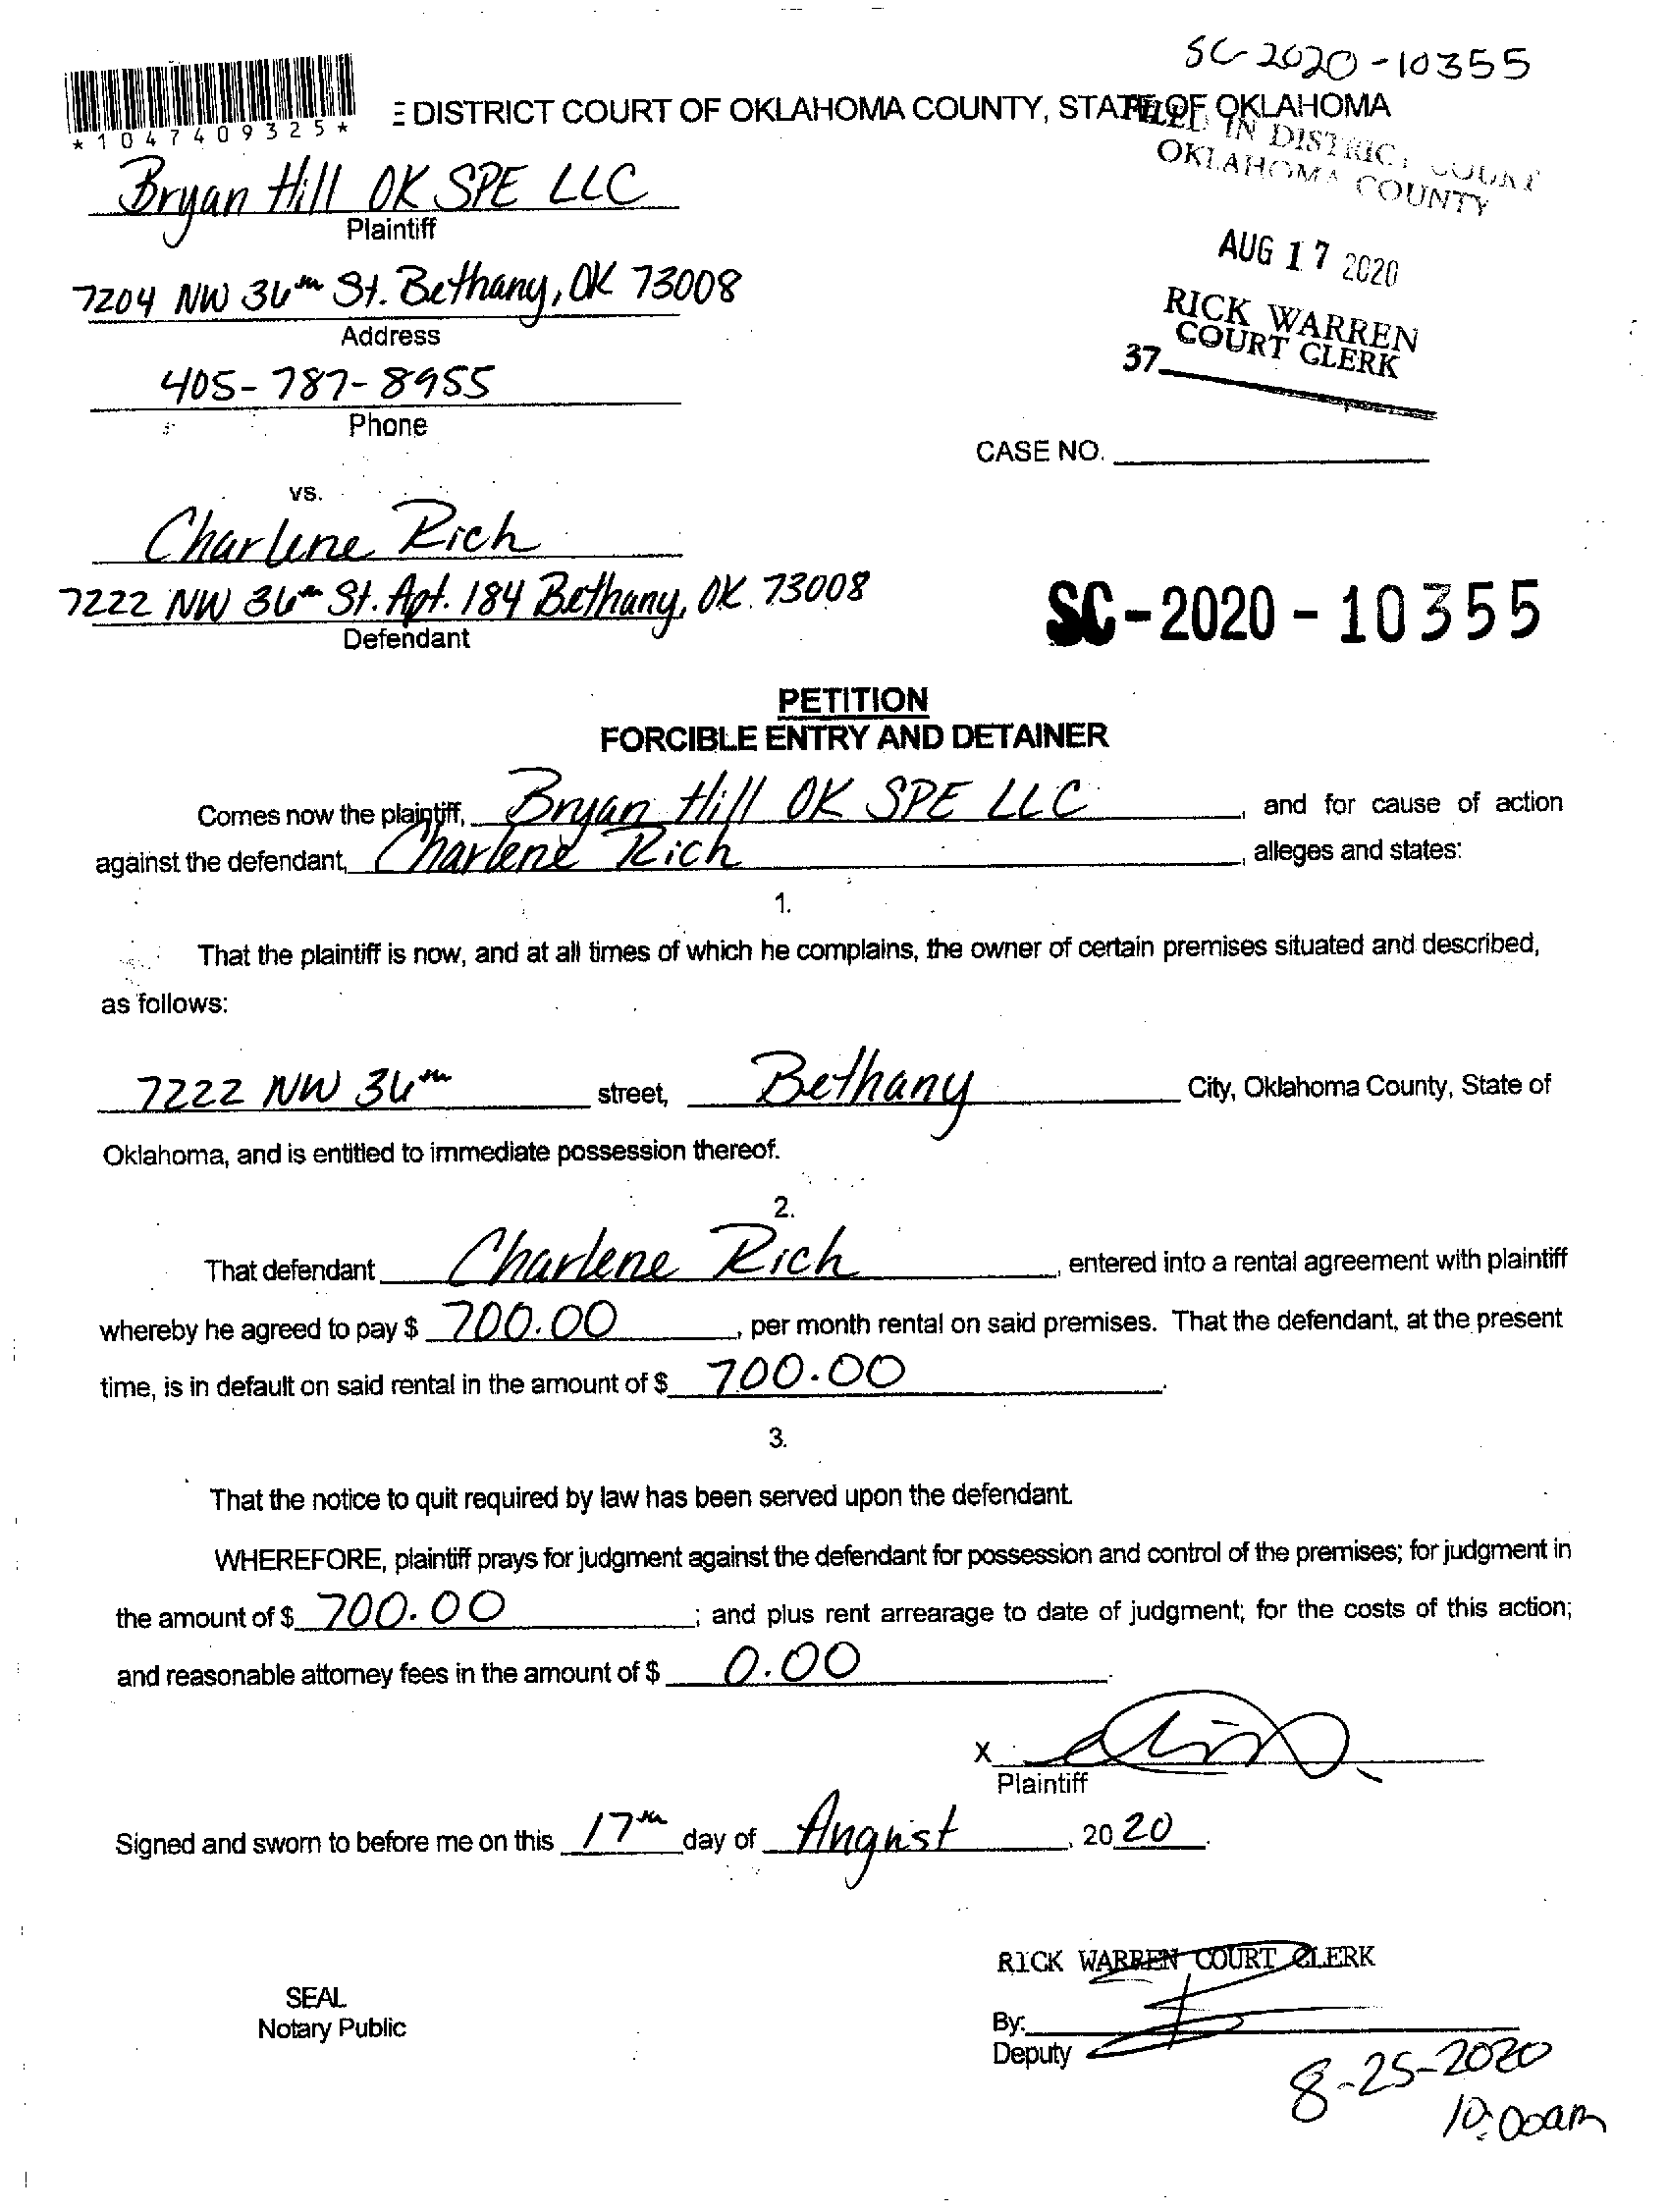 SC-2020-10355
*1047409325*
E DISTRICT COURT OF OKLAHOMA COUNTY, STATE OF OKLAHOMA
FILED IN DISTRICT COURT
OKLAHOMA COUNTY
Bryan Hill OK SPE LLC
Plaintiff
AUG 17 2020
7204 NW 36th St. Bethany, OK 73008
Address
RICK WARREN
COURT CLERK
37
405-787-8955
Phone
CASE NO.
vs.
Charlene Rich
7222 NW 36th St. Apt. 184 Bethany, OK. 73008
Defendant
SC-2020-10355
PETITION
FORCIBLE ENTRY AND DETAINER
Comes now the plaintiff, Bryan Hill OK SPE LLC, and for cause of action
against the defendant, Charlene Rich, alleges and states:
1.
That the plaintiff is now, and at all times of which he complains, the owner of certain premises situated and described,
as follows:
7222 NW 36th street, Bethany City, Oklahoma County, State of
Oklahoma, and is entitled to immediate possession thereof.
2.
That defendant Charlene Rich, entered into a rental agreement with plaintiff
whereby he agreed to pay $ 700.00, per month rental on said premises. That the defendant, at the present
time, is in default on said rental in the amount of $ 700.00.
3.
That the notice to quit required by law has been served upon the defendant.
WHEREFORE, plaintiff prays for judgment against the defendant for possession and control of the premises; for judgment in
the amount of $ 700.00; and plus rent arrearage to date of judgment; for the costs of this action;
and reasonable attorney fees in the amount of $ 0.00.
X
Plaintiff
Signed and sworn to before me on this 17th day of August, 2020.
RICK WARREN COURT CLERK
SEAL
Notary Public
By:
Deputy
8-25-2020
10:00am